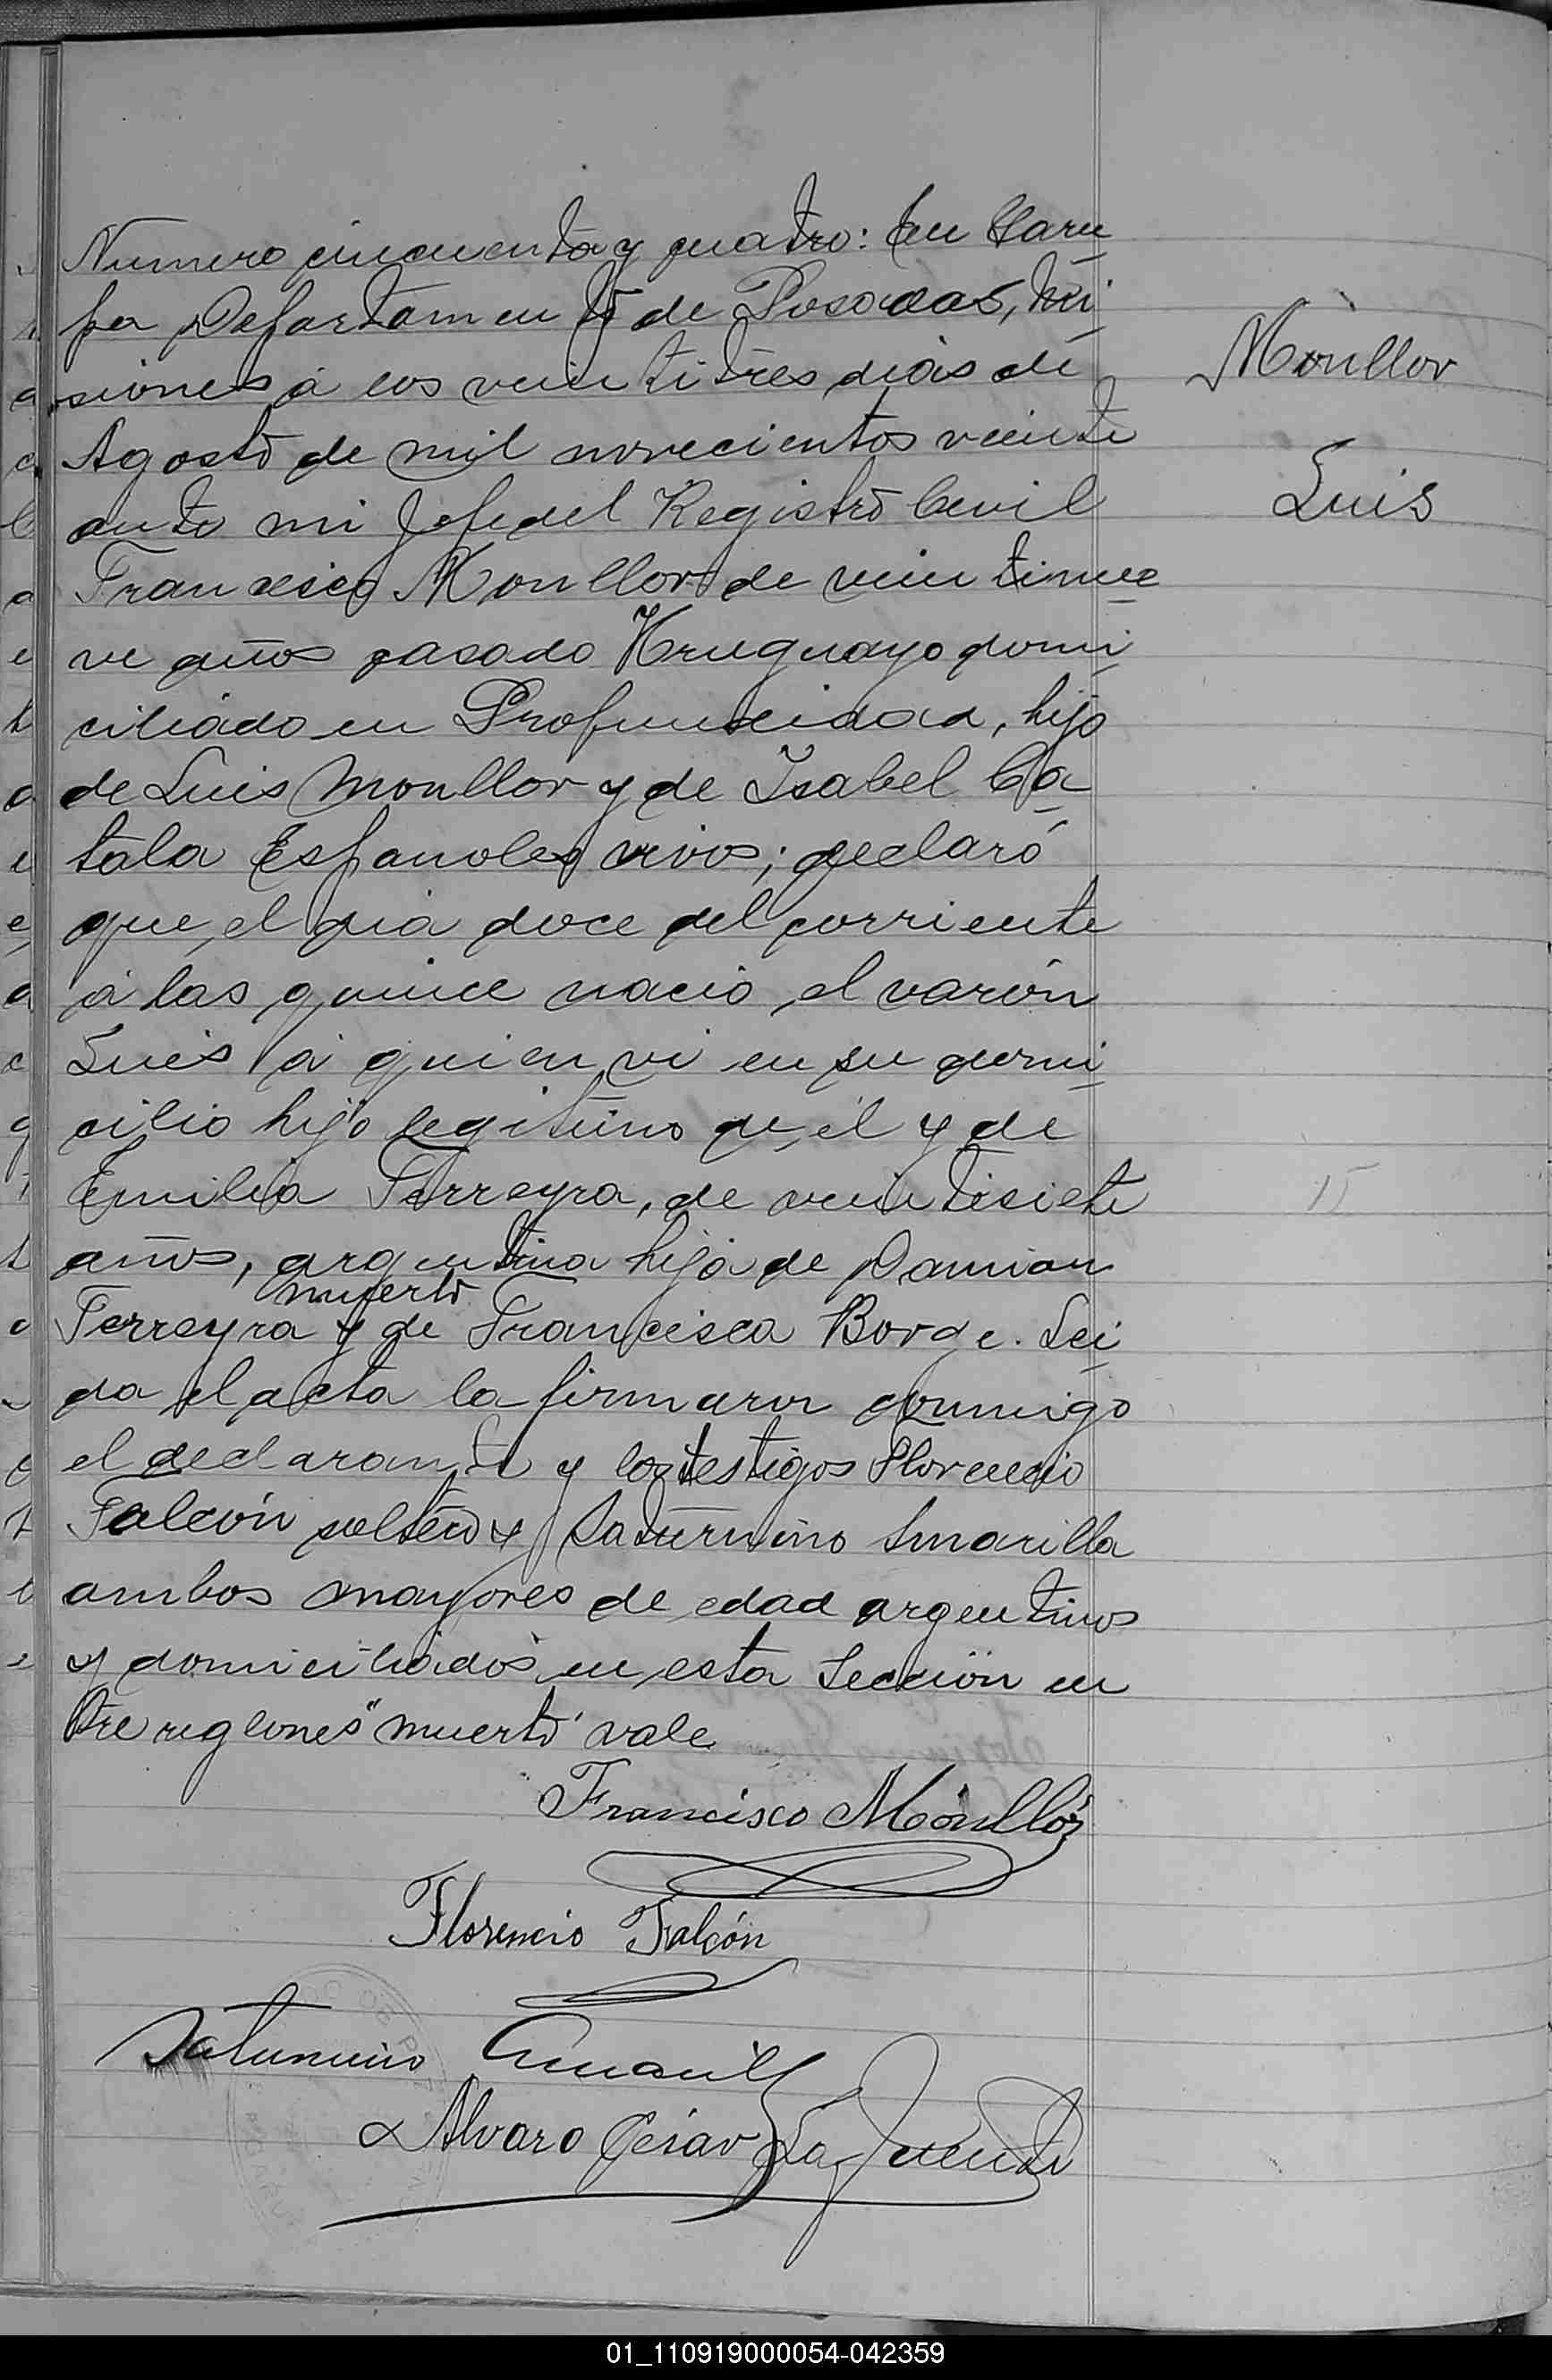 Numero cincuenta y cuatro: En Garu
pa Departamento de Posadas, Mi
siones á los veintitres dias de
Agosto de mil novecientos veinte
ante mi Jefe del Registro Civil
Francisco Moullor de veintinue
ve años casado Uruguayo domi
ciliado en Profundidad, hijo
de Luis Moullor y de Isabel Ca
tala Españoles vivos; declaró
que el dia doce del corriente
á las quince nació el varón
Luis á quien vi en su domi
cilio hijo legitimo de él y de
Emilia Ferreyra, de veintisiete
años, argentina hija de Damian
muerto
Ferreyra y de Francisca Borge. Lei
da el acta la firmaron conmigo
el declarante y los testigos Florencio
Falcón soltero y Saturnino Amarilla
ambos mayores de edad argentinos
y domiciliados en esta Sección en
tre reglones "muerto" vale
Moullor
Luis
15
Francisco Moullór
Florencio Falcón
Saturnino Amarilla
Alvaro César
01_110919000054-042359